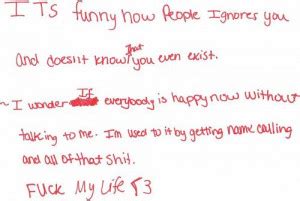 ITs funny how People Ignores you
and doesiit know that you even exist.
~ I wonder If everybody is happy now without
talking to me. Im used to it by getting name calling
and all of that shit.
FUCK My Life <3